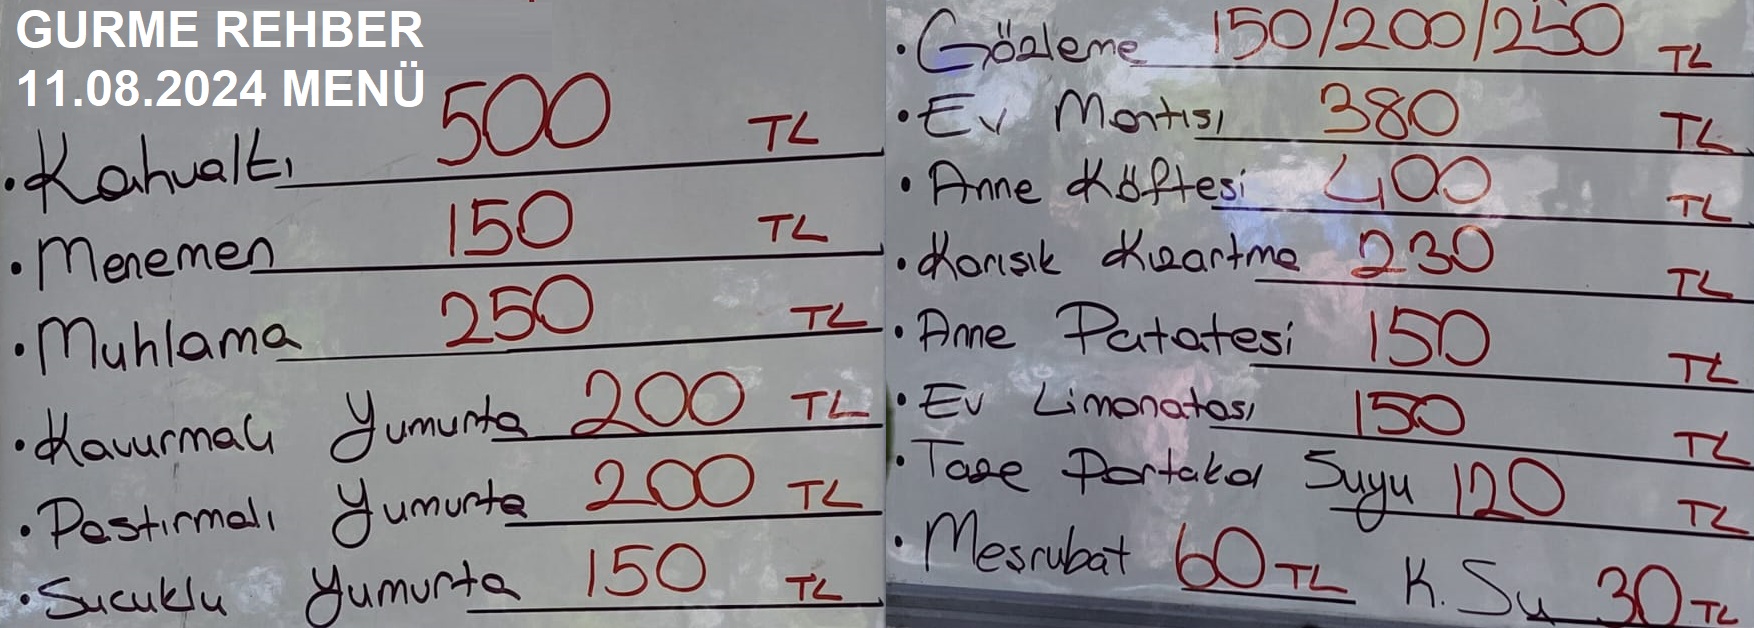 GURME REHBER
11.08.2024 MENÜ
• Kahvaltı 500 TL
• Menemen 150 TL
• Muhlama 250 TL
• Kavurmalı Yumurta 200 TL
• Pastırmalı Yumurta 200 TL
• Sucuklu Yumurta 150 TL
• Gözleme 150/200/250 TL
• Ev Mantısı 380 TL
• Anne Köftesi 400 TL
• Karısık Kızartma 230 TL
• Anne Patatesi 150 TL
• Ev Limonatası 150 TL
• Taze Portakal Suyu 120 TL
• Mesrubat 60 TL K. Su 30 TL